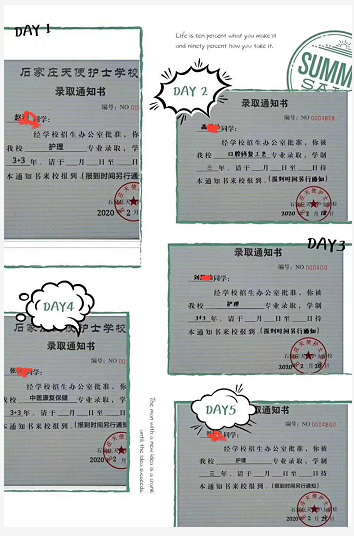 DAY 1
石家庄天使护士学校
录取通知书
编号：NO 00
同学：
经学校招生办公室批准，你被
我校 护理 专业录取，学制
3+3年．请于 月 日至 日
本通知书来校报到．(报到时间另行通知)
2020
Life is ten percent what you make it
and ninety percent how you take it.
SUMM
DAY 2
录取通知书
编号：NO
同学：
经学校招生办公室批准，你被
我校 口腔修复工艺 专业录取，学制
三 年．请于 月 日至 日待
本通知书来校报到．(报到时间另行通知)
2020 年 2 月
DAY3
录取通知书
编号：NO
同学：
经学校招生办公室批准，你被
我校 护理 专业录取，学制
3+3 年．请于 月 日至 日待
本通知书来校报到．(报到时间另行通知)
2020 年 2 月
DAY4
石家庄天使护士学校
录取通知书
编号：NO
同学：
经学校招生办公室批准，你
我校 中医康复保健 专业录取，学
3+3年．请于 月 日至 日
本通知书来校报到．(报到时间另行通知
2020 年 2 月
The man with a new idea is a crank
until the idea succeeds.
DAY5
录取通知书
编号：NO
同学：
经学校招生办公室批准，你被
我校 护理 专业录取，学制
三 年．请于 月 日至 日待
本通知书来校报到．(报到时间另行通知)
2020 年 2 月